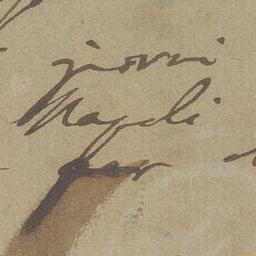 giorni
Napoli
per